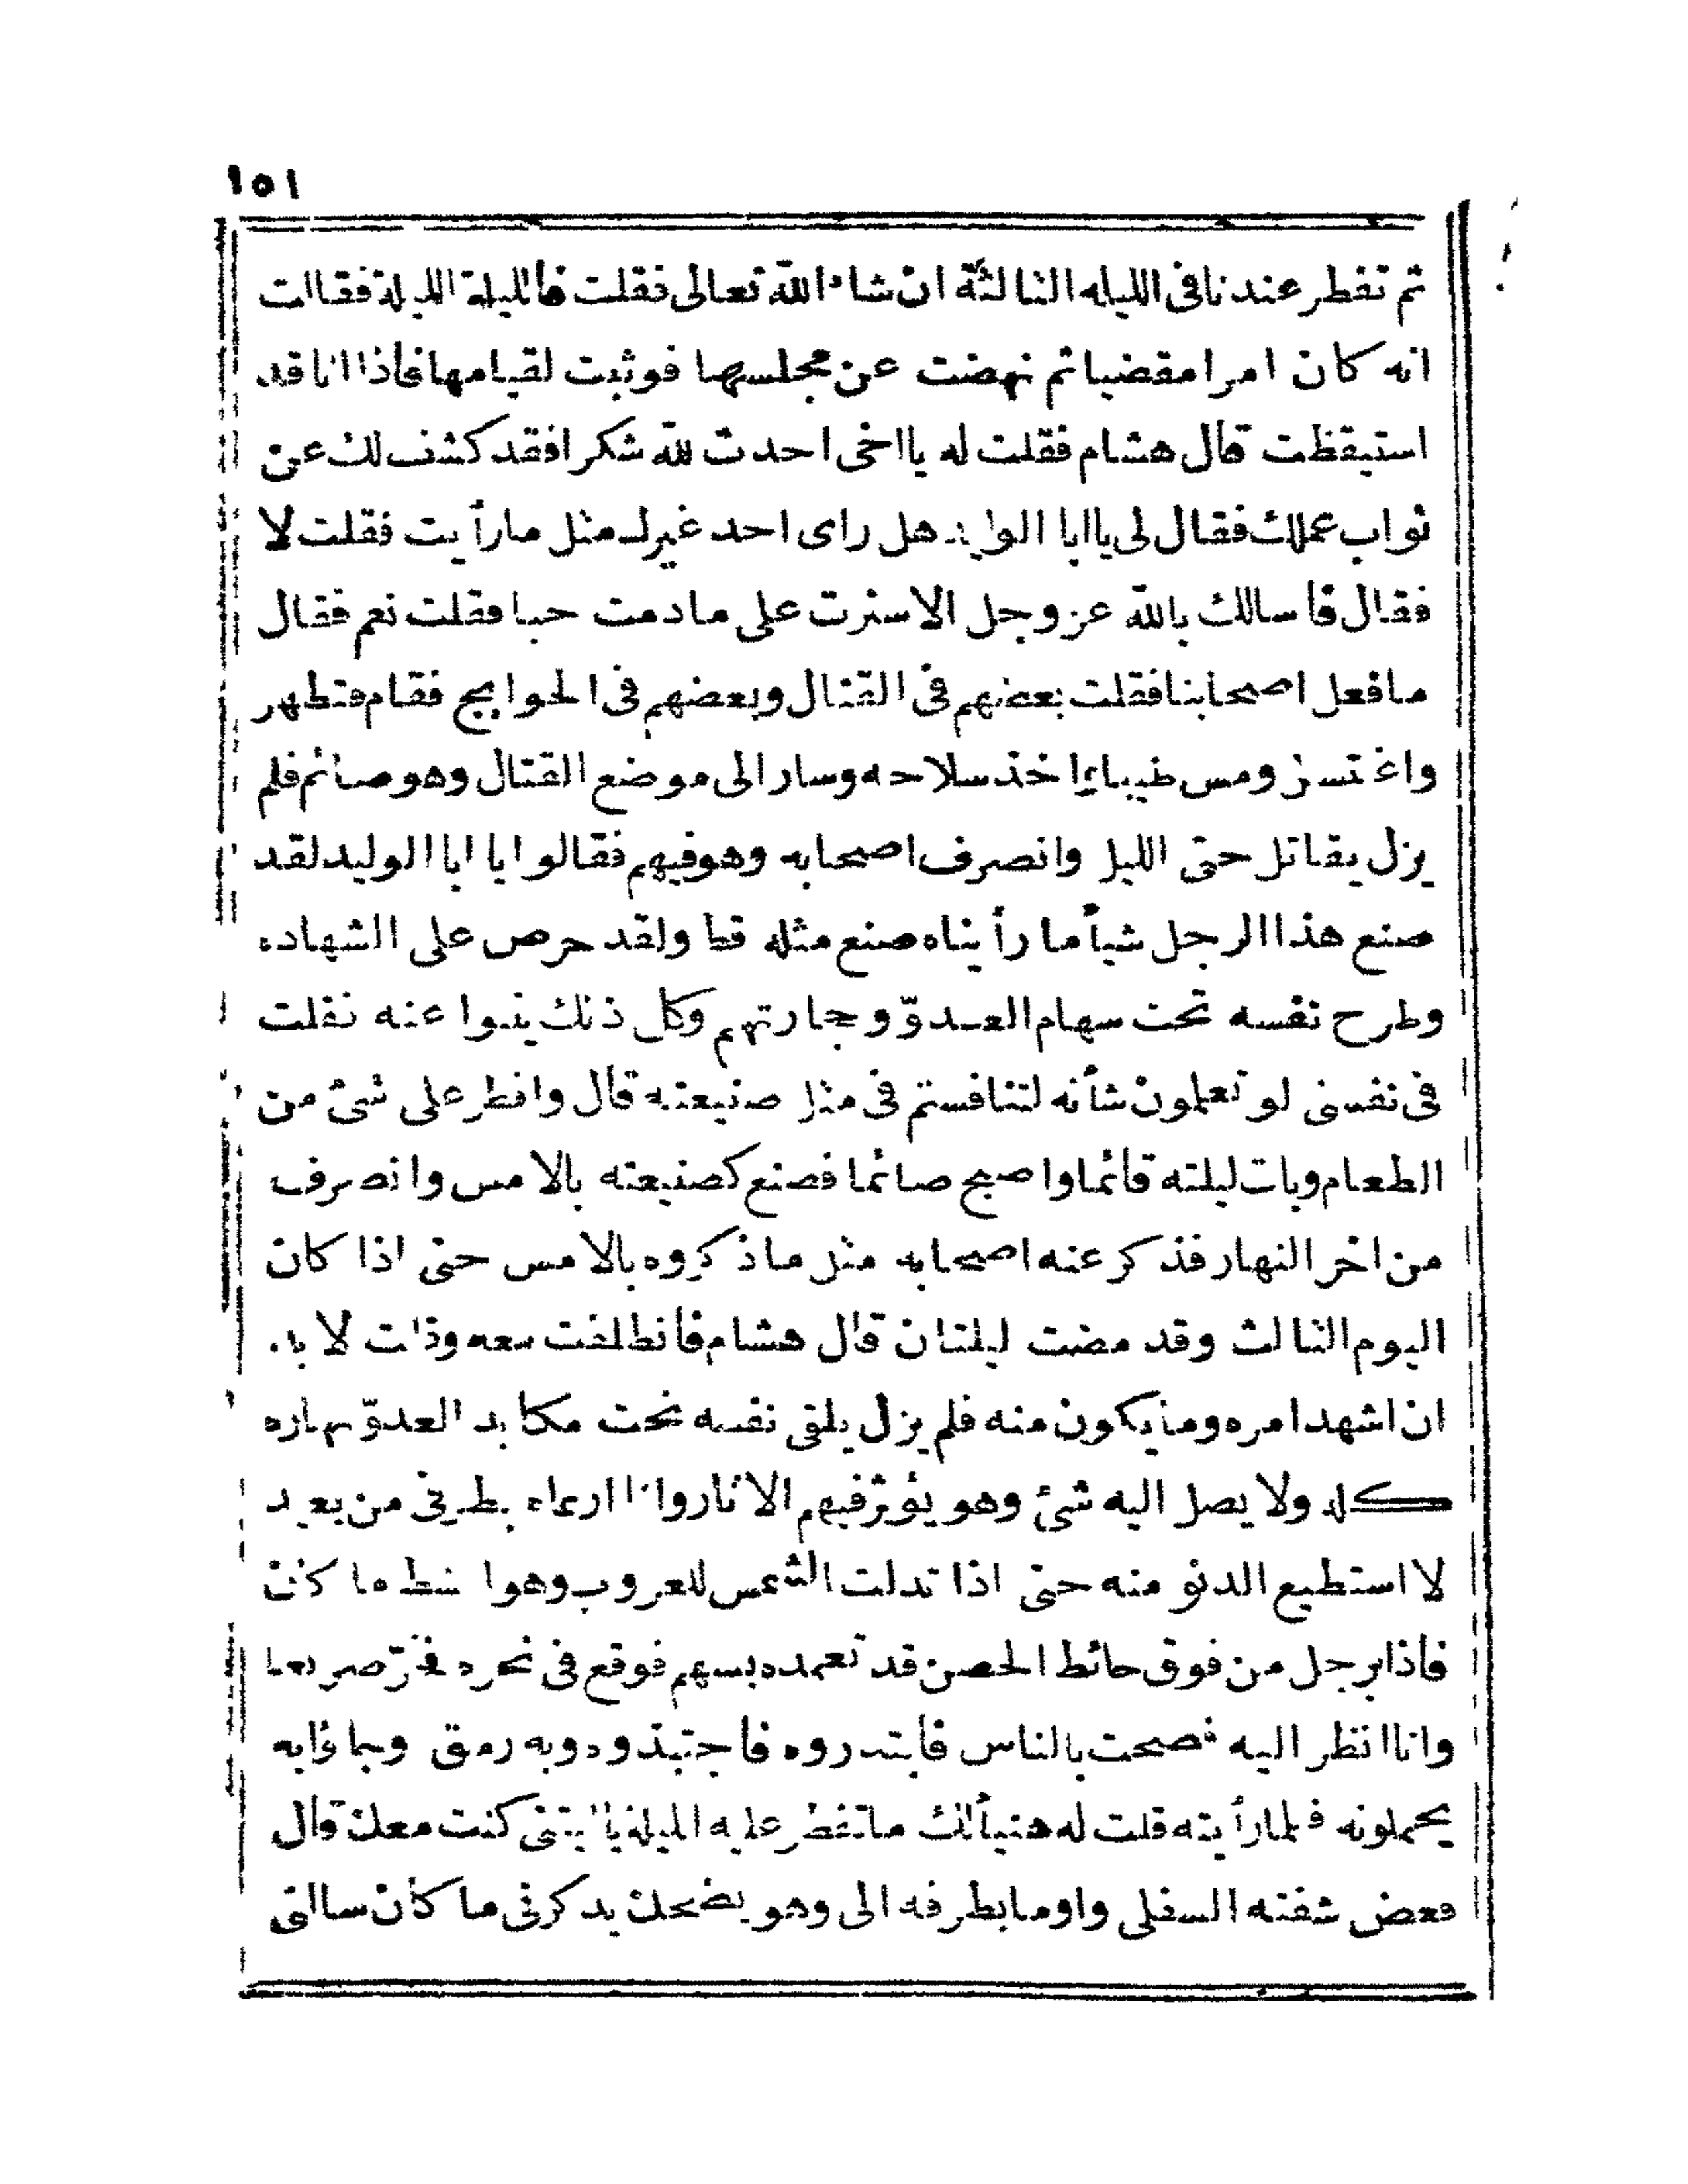 ١٥١
ثم تفطر عندنا فى الليله الثالثة ان شاء الله تعالى فقلت فالليلة الليلة فقالت
انه كان امرا مقضيا ثم نهضت عن مجلسها فوثبت لقيامها فاذا انا قد
استيقظت قال هشام فقلت له يا اخى احدث لله شكرا فقد كشف لك عن
ثواب عملك فقال لى يا ابا الوليد هل راى احد غيرك مثل ما رأيت فقلت لا
فقال فاسالك بالله عز وجل الا سترت على ما دمت حيا فقلت نعم فقال
ما فعل اصحابنا فقلت بعضهم فى القتال وبعضهم فى الحوايج فقام فتطهر
واغتسل ومس طيبا واخذ سلاحه وسار الى موضع القتال وهو صائم فلم
يزل يقاتل حتى الليل وانصرف اصحابه وهو فيهم فقالوا يا ابا الوليد لقد
صنع هذا الرجل شيأ ما رأيناه صنع مثله قط ولقد حرص على الشهاده
وطرح نفسه تحت سهام العدوّ وحجارتهم وكل ذلك ينبوا عنه فقلت
فى نفسى لو تعلمون شأنه لتنافستم فى مثل صنيعته قال وافطر على شئ من
الطعام وبات ليلته قائما واصبح صائما فصنع كصنيعته بالامس وانصرف
من اخر النهار فذكر عنه اصحابه مثل ما ذكروه بالامس حتى اذا كان
اليوم الثالث وقد مضت ليلتان قال هشام فانطلقت معه وقلت لا بد
ان اشهد امره وما يكون منه فلم يزل يلقى نفسه تحت مكايد العدوّ نهاره
كله ولا يصل اليه شئ وهو يؤثر فيهم الاثار وانا ارعاه بطرفى من بعيد
لا استطيع الدنو منه حتى اذا تدلت الشمس للغروب وهو انشط ما كان
فاذا برجل من فوق حائط الحصن قد تعمده بسهم فوقع فى نحره فخرّ صريعا
وانا انظر اليه فصحت بالناس فابتدروه فاجتبذوه وبه رمق وجاؤا به
يحملونه فلما رأيته قلت له هنيأ لك ما تفطر عليه الليلة يا ليتنى كنت معك قال
فعض شفته السفلى واوما بطرفه الى وهو يضحك يدكرنى ما كان سالنى